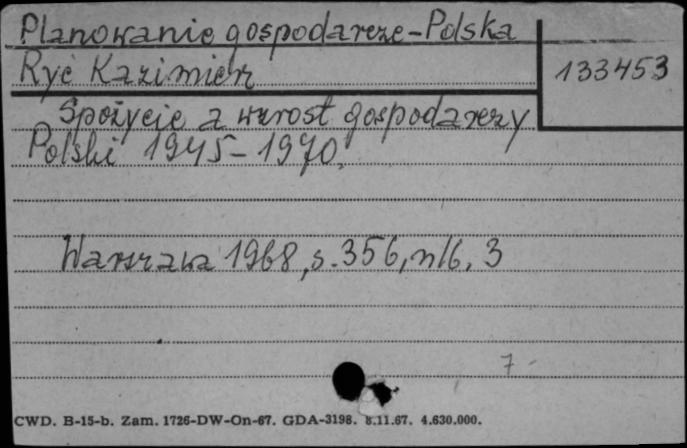 Planowanie gospodarcze-Polska
Ryć Kazimierz
133453
Spożycie a wzrost gospodarczy
Polski 1945-1970.
Warszawa 1968, s. 356, nlb. 3
7
CWD. B-15-b. Zam. 1726-DW-On-67. GDA-3198. 8.11.67. 4.630.000.